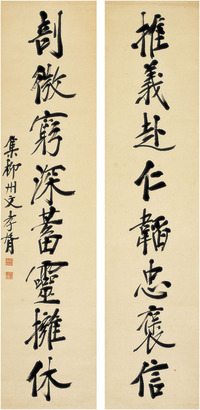 推義赴仁韜忠褒信
剖微窮深蓄靈擁休
集柳州文李胥